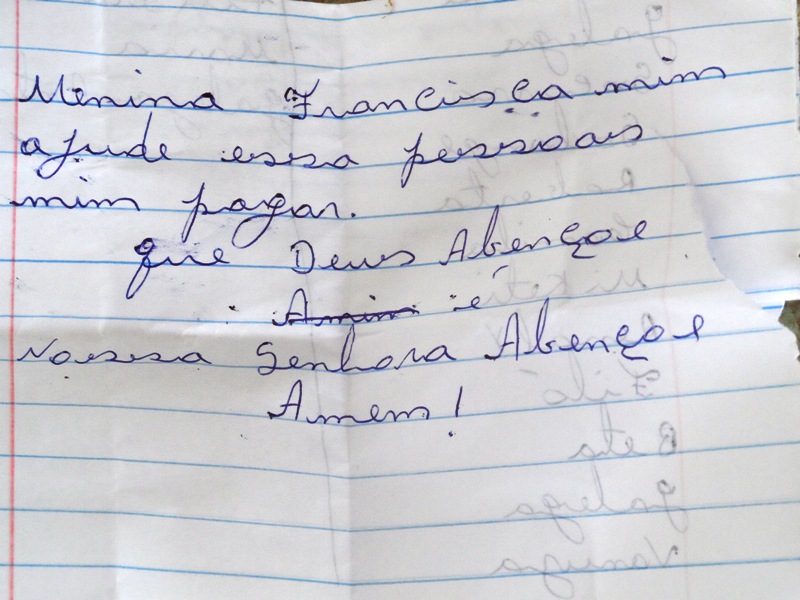 Menina Francisca mim
ajude essa pessoas
mim pagar.
que Deus Abençoe
Amim é
Nossa Senhora Abençoe
Amem!